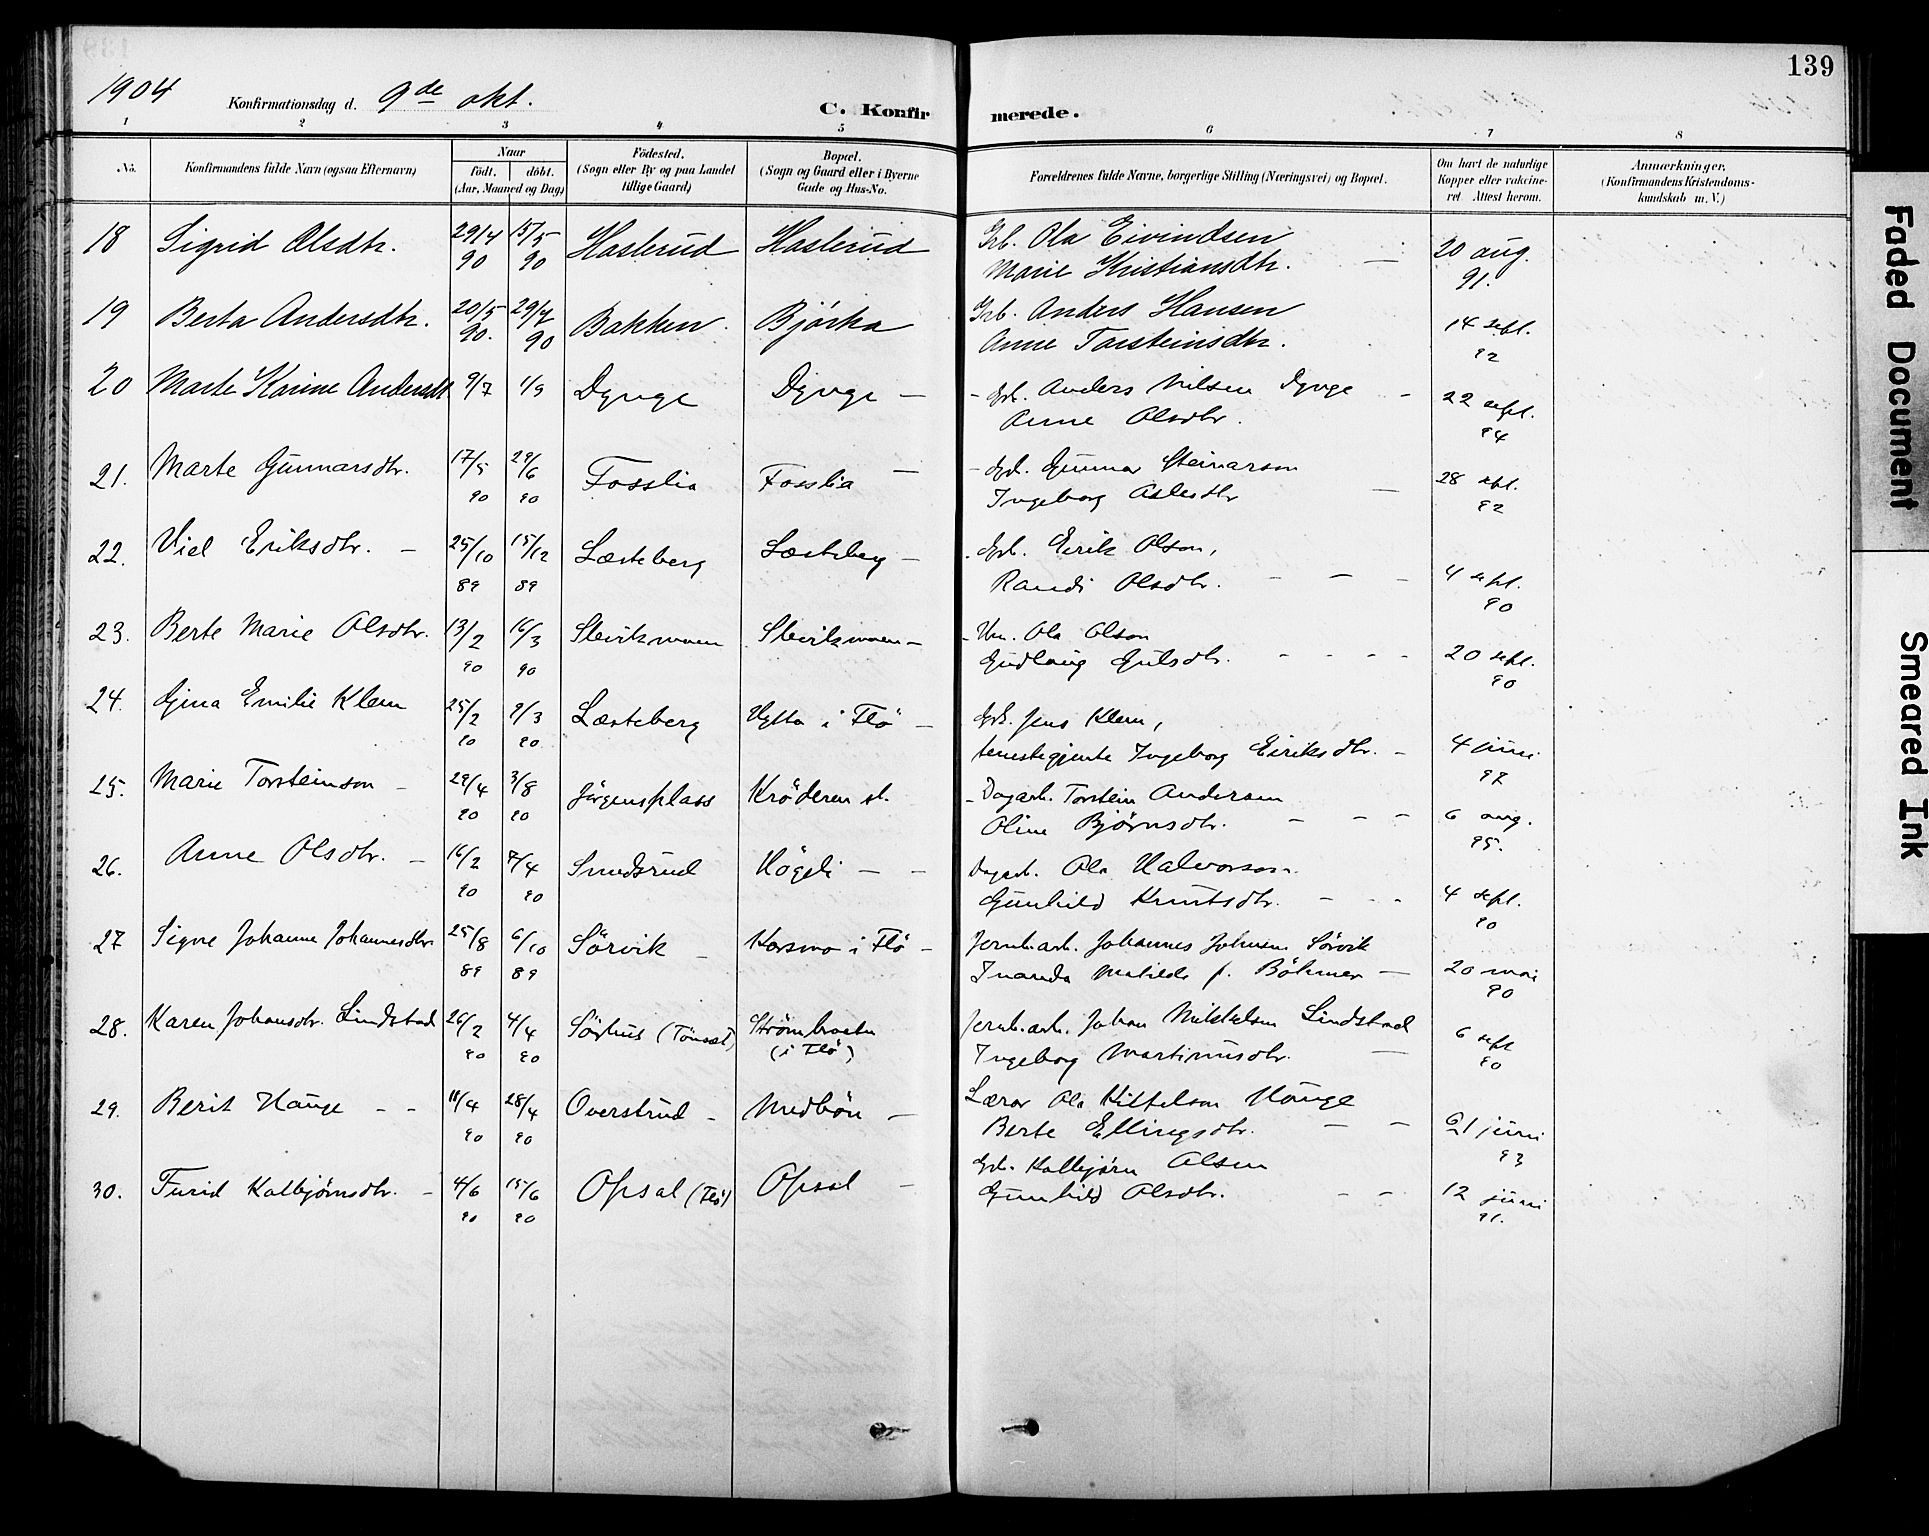 139
1904 Konfirmationsdag d. 9de okt. C. Konfirmerede.
1 2 3 4 5 6 7 8
No. Konfirmandens fulde Navn (ogsaa Efternavn) Naar født. døbt. (Aar, Maaned og Dag) Födested. (Sogn eller By og paa Landet tillige Gaard) Bopæl. (Sogn og Gaard eller i Byerne Gade og Hus-No. Forældrenes fulde Navne, borgerlige Stilling (Næringsvei) og Bopæl. Om havt de naturlige Kopper eller vakcineret Attest herom. Anmærkninger, (Konfirmandens Kristendomskundskab m. V.)
18 Sigrid Olsdtr. 29/4 90 15/5 90 Haslerud Haslerud Grb. Ola Eivindsen
Marie Kristiansdtr. — 20 aug. 91.
19 Berta Andersdtr. 20/5 90. 29/7 90 Bakken Bjørka Grb. Anders Hansen
Anne Torsteinsdtr. 14 sept. 92
20 Marte Karine Andersdt 9/7 1/9 Dynge Dynge — - Grb. Anders Nilsen Dynge -
Anne Olsdtr. 22 sept. 94
21. Marte Gunnarsdtr. 17/5 90 29/6 90 Fosslia Fosslia — - Grb. Gunnar Steinarson
Ingeborg Aslesdtr — 28 sept. 92
22. Viel Eriksdtr. — 25/10 89 15/12 89 Læsteberg Læsteberg — - Grb. Eirik Olson,
Randi Olsdtr. - — - 4 sept. 90
23. Berte Marie Olsdtr. 13/2 90 16/3 90 Slevikmoen Slevikmoen — - Um. Ola Olson
Gudlaug Gulsdtr. - - - - 20 sept. 90
24. Gina Emilie Klem 25/2 90 9/3 90 Læsteberg Hytta i Flø — Grb. Jens Klem,
tenestegjente Ingeborg Eiriksdtr. — 4 juni 97
25. Marie Torsteinson — 29/4 90 3/8 90 Jörgensplass Krøderen st. - Dagarb. Torstein Anderson
Oline Bjørnsdtr. - - - 6 aug. 95.
26. Anne Olsdtr. — 16/2 90 7/4 90 Smedsrud Høgeli — - Dagarb. Ola Halvorson
Gunhild Knutsdtr. - - - 4 sept. 90
27 Signe Johanne Johannesdtr. 25/8 89 6/10 89 Sörvik — Korsmo i Flø — Jernb.arb. Johannes Johnsen Sörvik
Inanda Matilde f. Böhmer — 20 mai 90
28. Karen Johansdtr. Lindstad 26/2 90 4/4 90 Sörhus (Tönset) Strömbraaten (i Flø) Jernb.arb. Johan Mikkelsen Lindstad
Ingeborg Martinusdtr. — 6 sept 90
29. Berit Hauge - - 11/4 90 28/4 90 Overstrud — Medbøn — Lærar Ola Kittelson Hauge
Berte Ellingsdtr. - - 21 juni 93
30. Turid Kolbjørnsdtr. — 4/6 90 15/6 90 Opsal (Flø) Opsal — Grb. Kolbjørn Olsen
Gunhild Olsdtr. - - 12 juni 91.
Faded Document
Smeared Ink